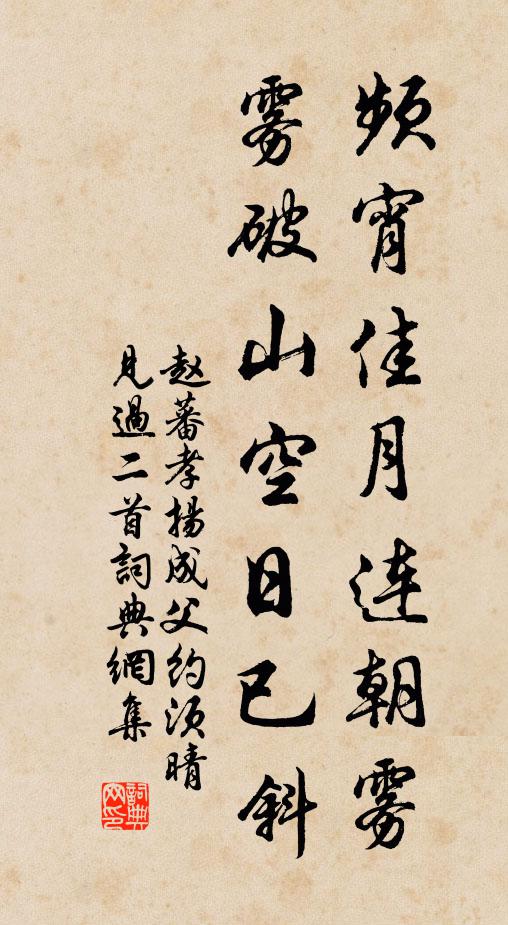 频宵佳月连朝雾
雾破山空日已斜
赵蕃孝扬成父约须晴
见過二首詞典網集
詞典网印